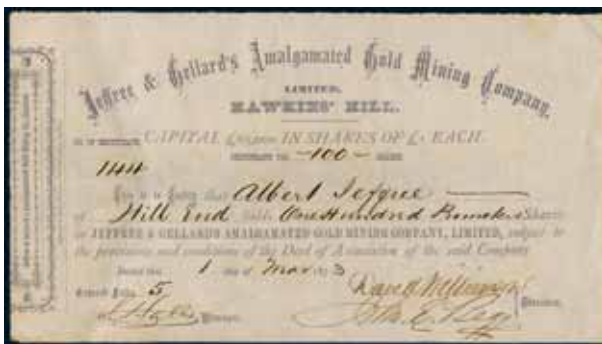 Jeffree & Gellard's Amalgamated Gold Mining Company,
LIMITED,
HAWKINS' HILL.
No. OF CERTIFICATE CAPITAL IN SHARES OF EACH.
CERTIFICATE FOR -100- SHARES
144
This is to Certify that Albert Jeffree
of Hill End holds One Hundred Promoters Shares
in JEFFREE & GELLARD'S AMALGAMATED GOLD MINING COMPANY, LIMITED, subject to
the provisions and conditions of the Deed of Association of the said Company
Dated this 1 day of Mar 1873
Entered Folio 5
Manager.
Directors.